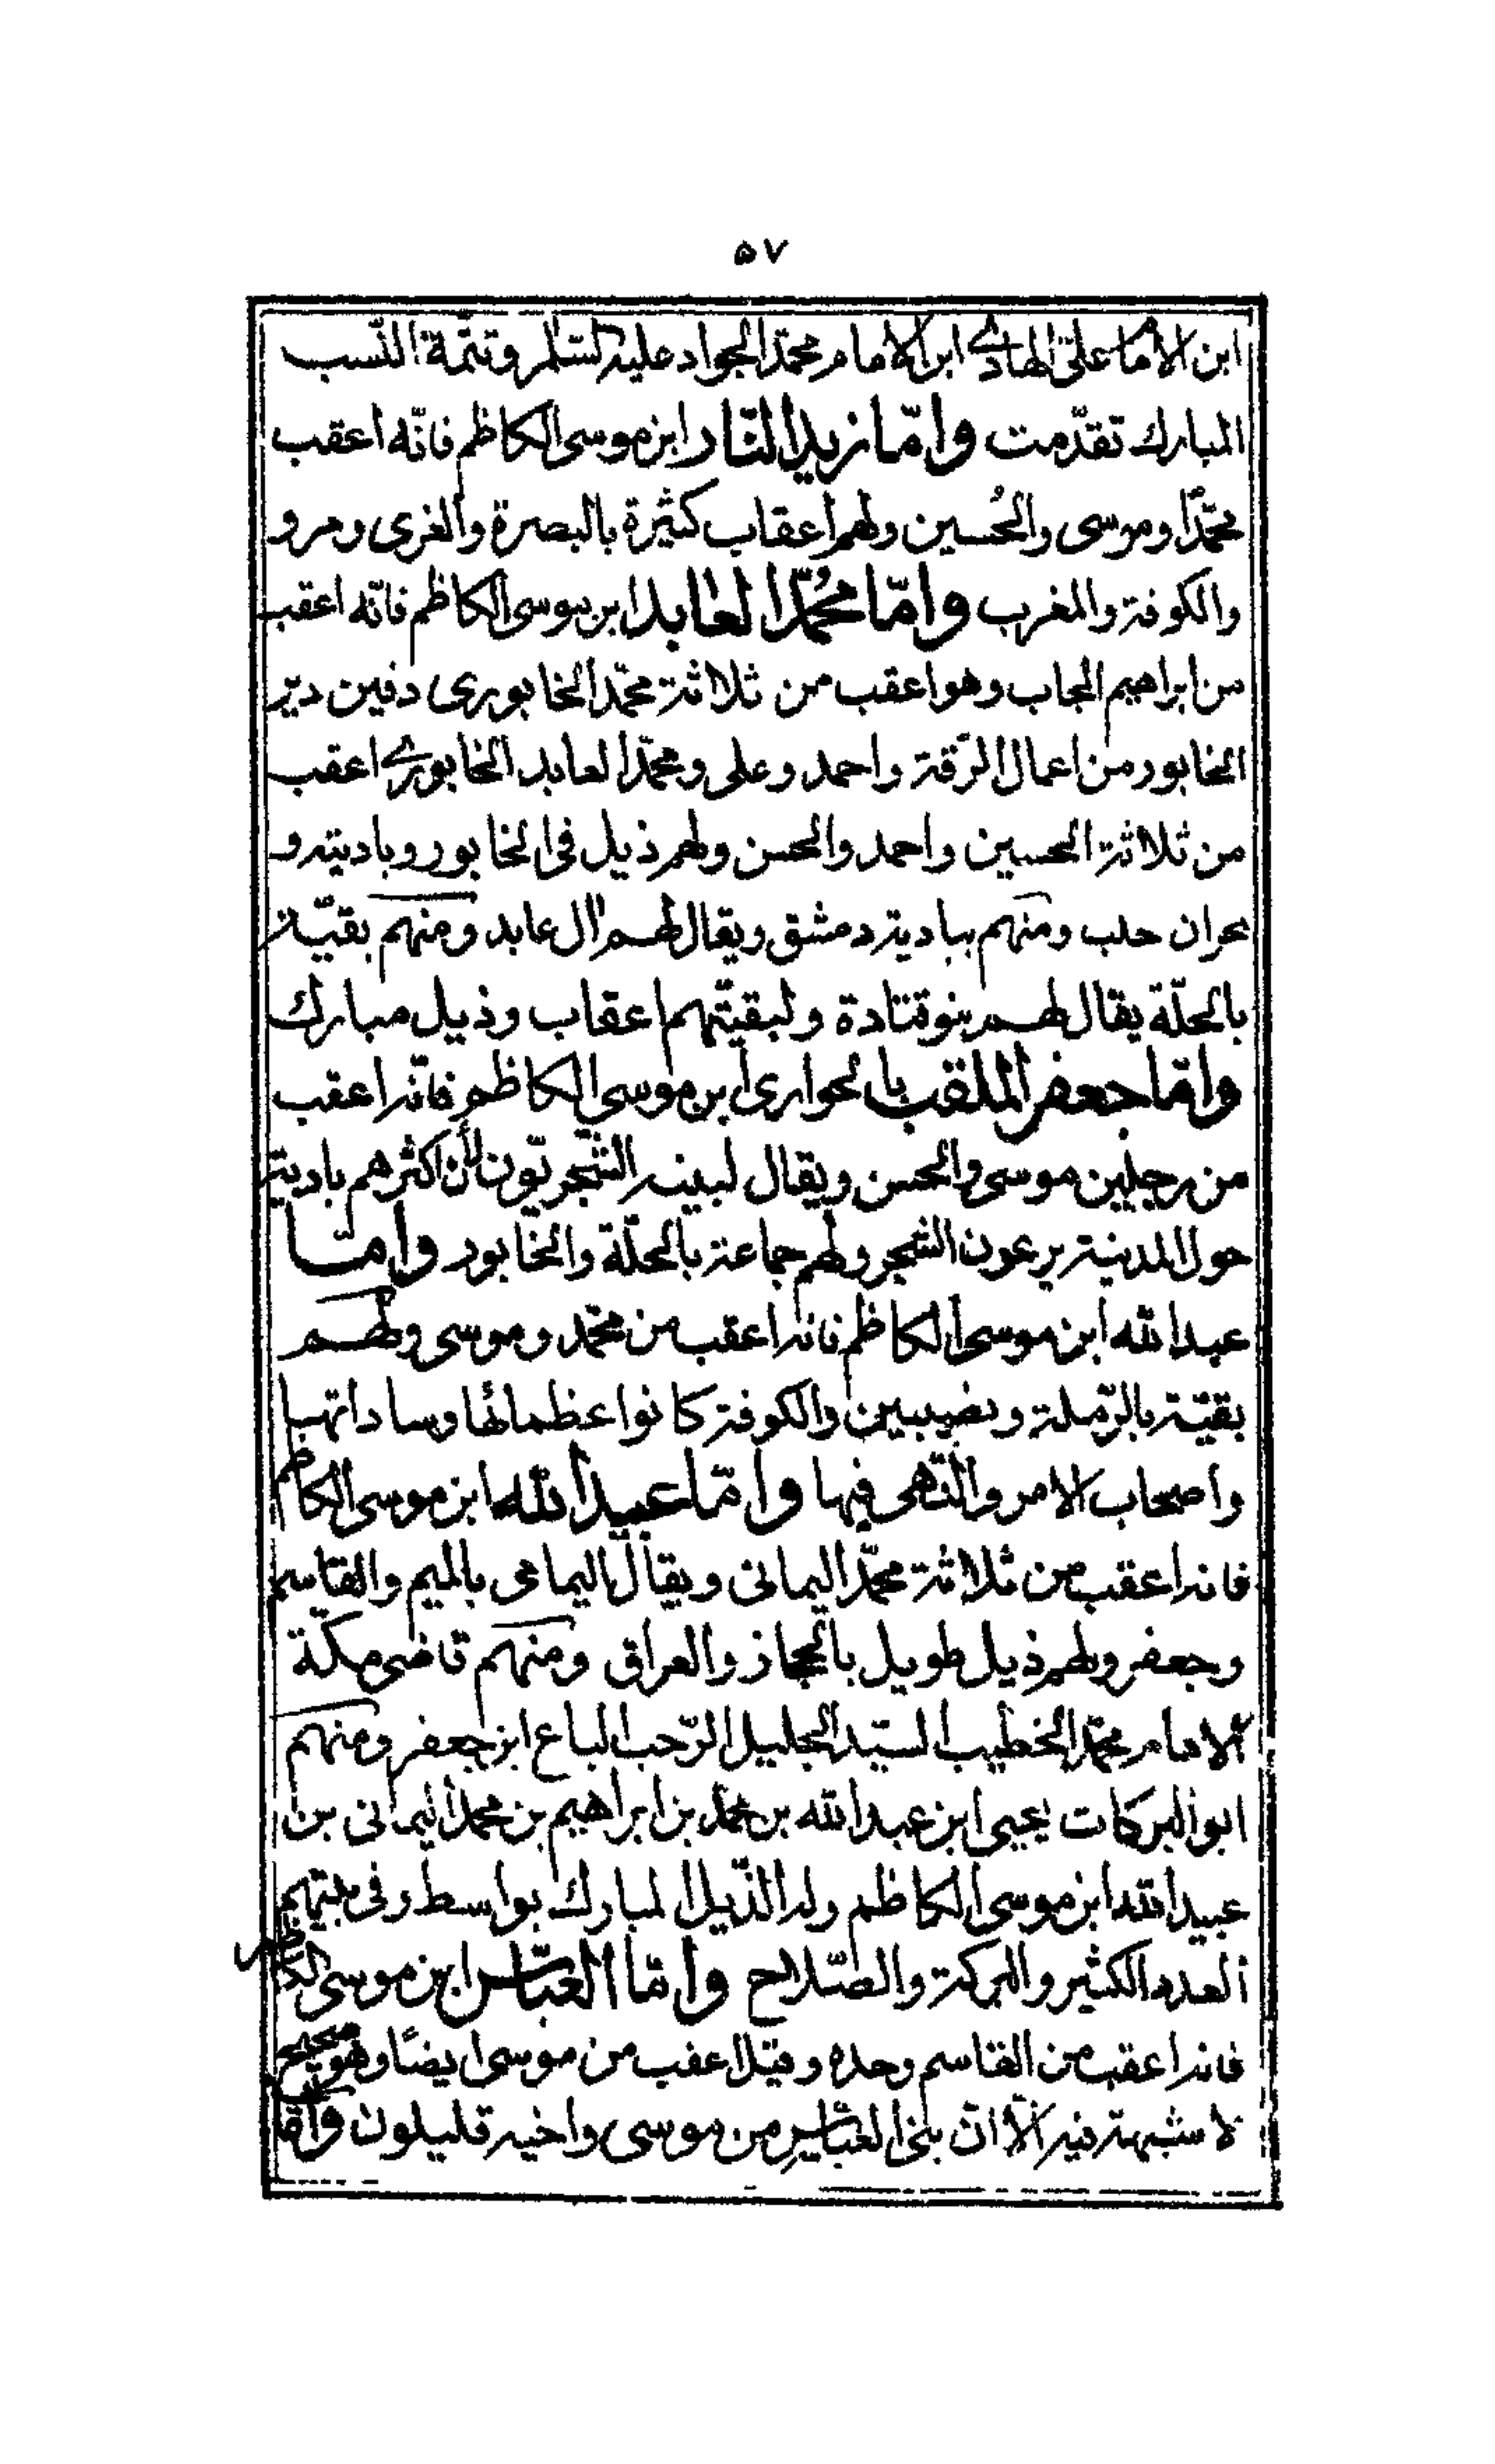 ۵۷
ابن الامام علىّ الهادى ابن الامام محمّد الجواد عليه السّلام وتتمّة النّسب
المبارك تقدّمت وامّا زيد النّار ابن موسى الكاظم فانّه اعقب
محمّدًا وموسى والحُسين ولهم اعقاب كثيرة بالبصرة والغرى ومرو
والكوفة والمغرب وامّا محُمّد العابد ابن موسى الكاظم فانّه اعقب
من ابراهيم المجاب وهو اعقب من ثلاثة محمّد الخابورى دفين دير
الخابور من اعمال الرّقة واحمد وعلى ومحمّد العابد الخابورى اعقب
من ثلاثة الحسين واحمد والحسن ولهم ذيل فى الخابور وباديته و
بحران حلب ومنهم ببادية دمشق ويقال لهم آل عابد ومنهم بقيّة
بالحلّة يقال لهم بنو قتادة ولبقيّتهم اعقاب وذيل مبارك
وامّا جعفر الملقب بالحوارى ابن موسى الكاظم فانّه اعقب
من رجلين موسى والحسن ويقال لبنيه الشّجريّون لأن اكثرهم بادية
حول المدينة يرعون الشجر ولهم جماعة بالحلّة والخابور وامّا
عبد الله ابن موسى الكاظم فانه اعقب من محمّد وموسى ولهم
بقيّة بالرّملة ونصيبين والكوفة كانوا عظمائها وساداتها
واصحاب الامر والنّهى فيها وامّا عبيد الله ابن موسى الكاظم
فانه اعقب من ثلاثة محمّد اليمانى ويقال اليمامى بالميم والقاسم
وجعفر ولهم ذيل طويل بالحجاز والعراق ومنهم قاضى مكّة
الامام محمّد الخطيب السيّد الجليل الرّحب الباع ابن جعفر ومنهم
ابو البركات يحيى ابن عبد الله بن محمّد بن ابراهيم بن محمد اليمانى بن
عبيد الله ابن موسى الكاظم وله الذّيل المبارك بواسط وفى بقيّتهم
العدد الكثير والبركة والصّلاح وامّا العبّاس ابن موسى الكاظم
فانه اعقب من القاسم وحده وقيل اعقب من موسى ايضًا وهو صحيح
لا شبهة فيه الّا انّ بنى العبّاس من موسى واخيه قليلون وامّا